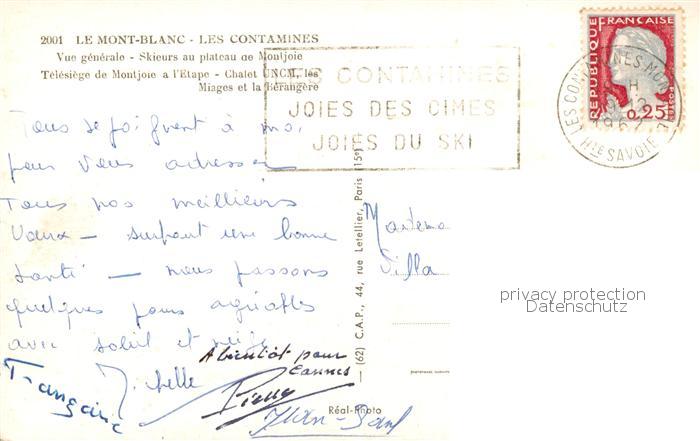 2001 LE MONT-BLANC - LES CONTAMINES
Vue générale - Skieurs au plateau de Montjoie
Télésiège de Montjoie a l'Etape - Chalet UNCM, les
Miages et la Bérangère
LES CONTAMINES
JOIES DES CIMES
JOIES DU SKI
REPUBLIQUE FRANÇAISE
0,25
LES CONTAMINES-MONTJOIE
HTE SAVOIE
Tous se joignent à moi
pour vous adresser
Tous nos meilleurs
Vœux - surtout une bonne
santé - nous passons
quelques jours agréables
avec soleil et neige
Michelle
A bientôt pour
Cannes
Pierre
Jean-Paul
Réal-Photo
(62) C.A.P., 44, rue Letellier, Paris (15e)
Madame
Villa
privacy protection
Datenschutz